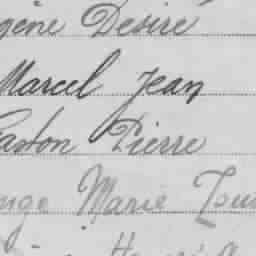 gène Désiré
Marcel Jean
Gaston Pierre
ange Marie Lou